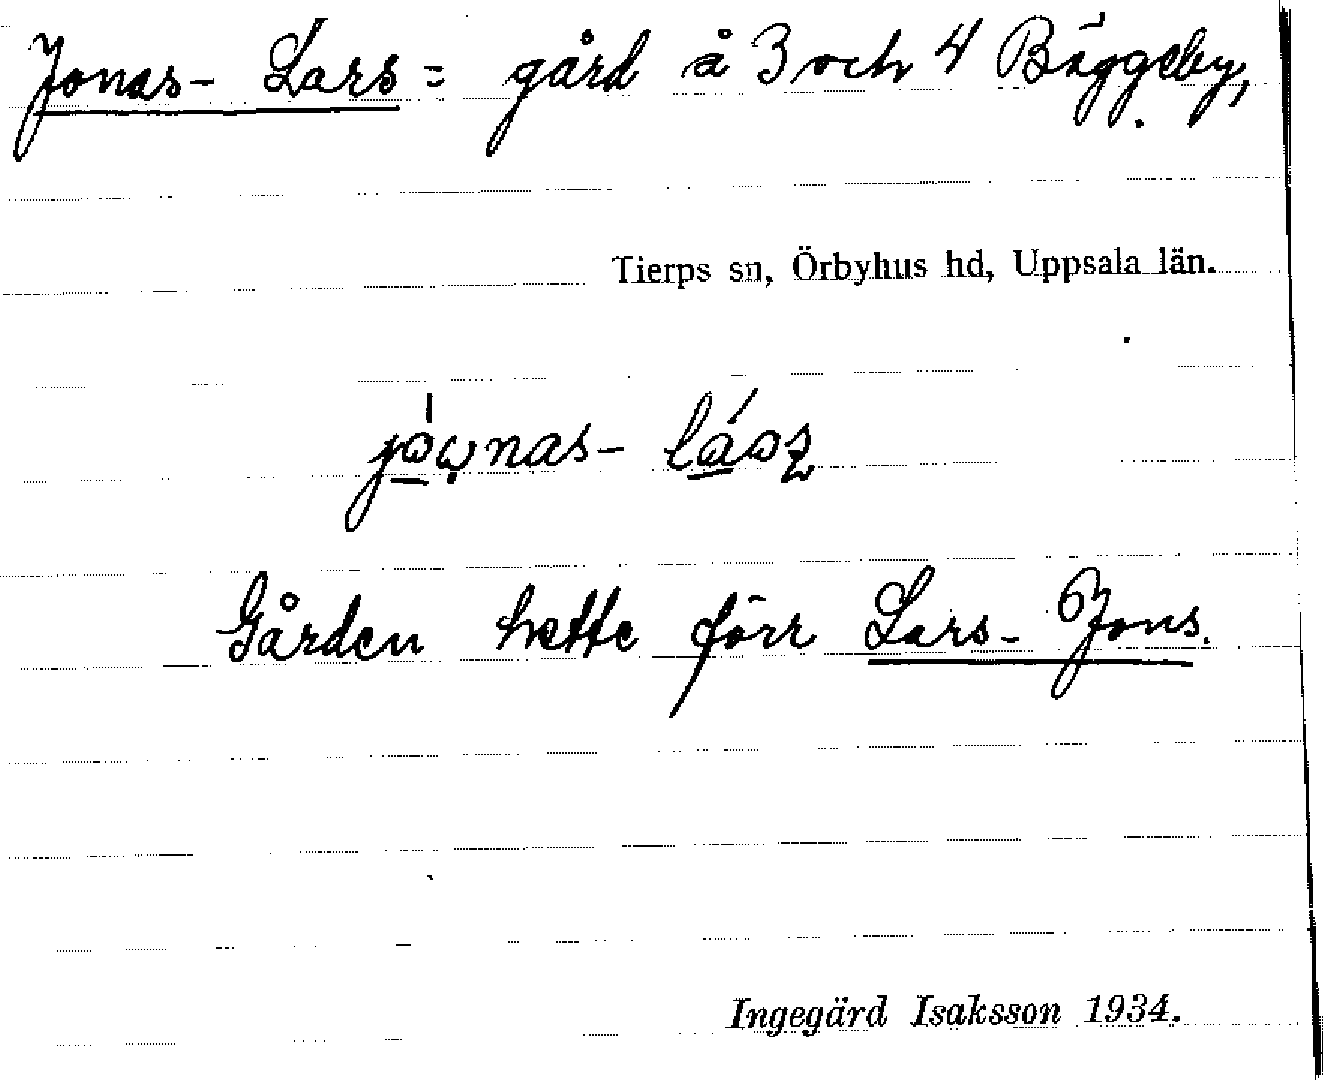 Jonas- Lars = gård å 3 och 4 Bäggeby,
Tierps sn, Örbyhus hd, Uppsala län.
Gården hette förr Lars- Jons.
Ingegärd Isaksson 1934.